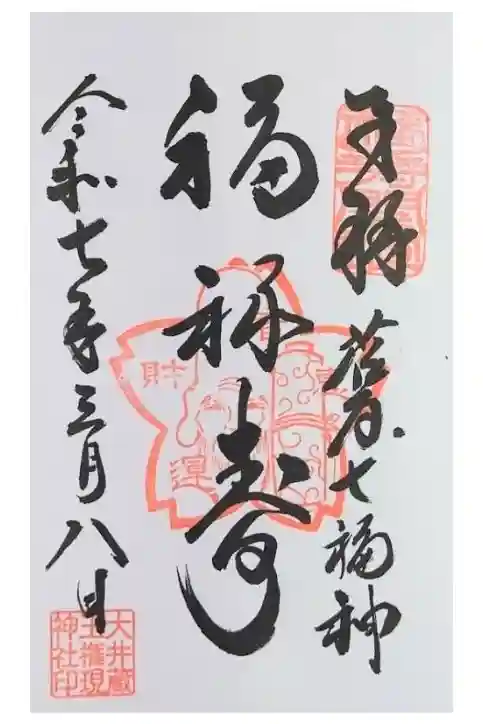 奉拝 荏原七福神
福禄寿
令和七年三月八日
財
運
大井蔵
王権現
神社印